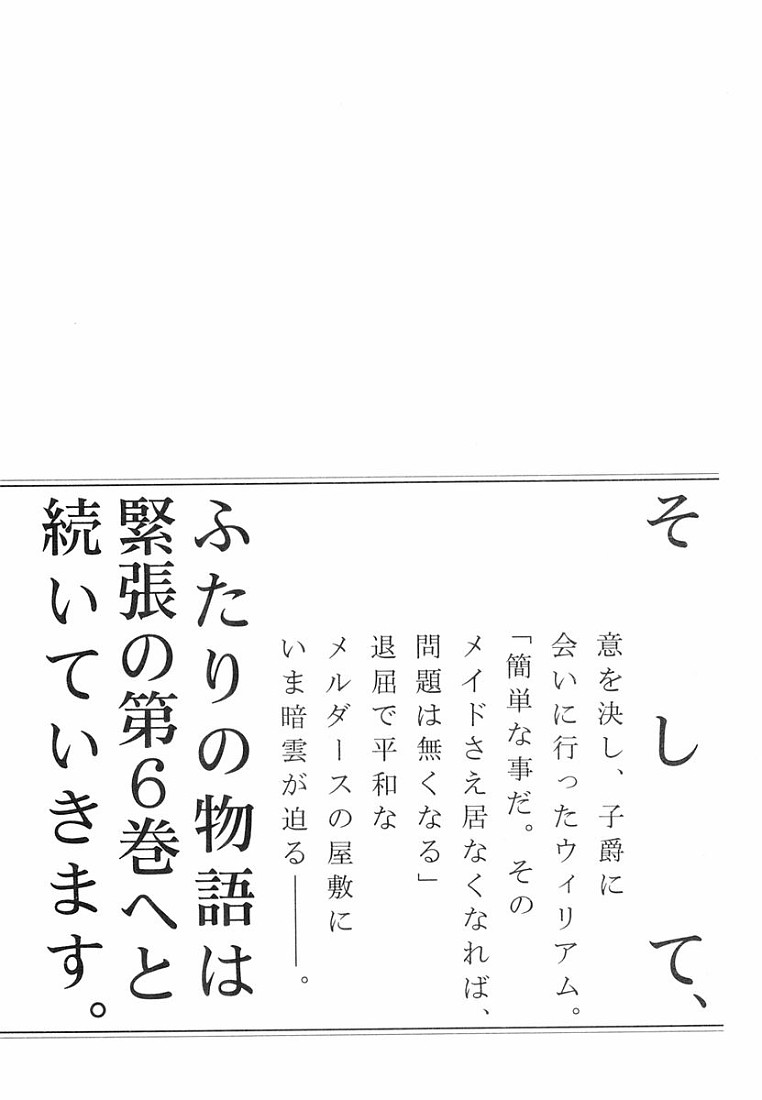 そして、
意を決し、子爵に
会いに行ったウィリアム。
「簡単な事だ。その
メイドさえ居なくなれば、
問題は無くなる」
退屈で平和な
メルダースの屋敷に
いま暗雲が迫る――。
ふたりの物語は
緊張の第6巻へと
続いていきます。